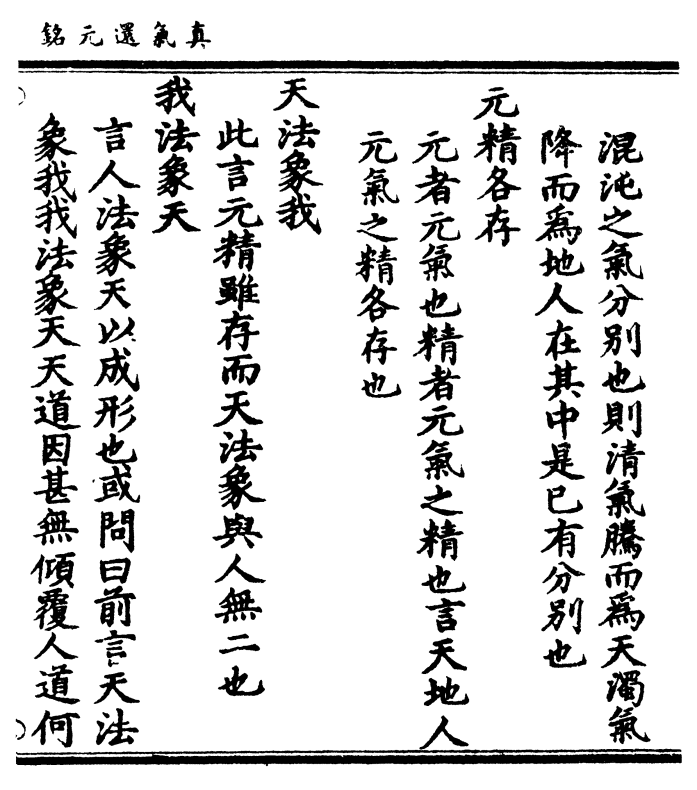 真氣還元銘
混沌之氣分別也則清氣騰而為天濁氣
降而為地人在其中是已有分別也
元精各存
元者元氣也精者元氣之精也言天地人
元氣之精各存也
天法象我
此言元精雖存而天法象與人無二也
我法象天
言人法象天以成形也或問曰前言天法
象我我法象天天道因甚無傾覆人道何